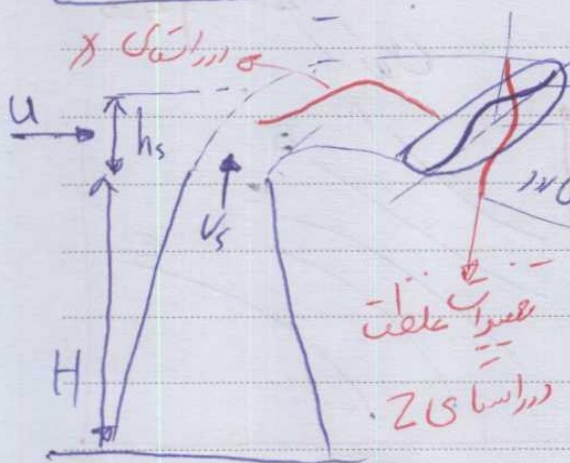 در راستای x
U
hs
Vs
H
تغییرات غلظت
در راستای Z